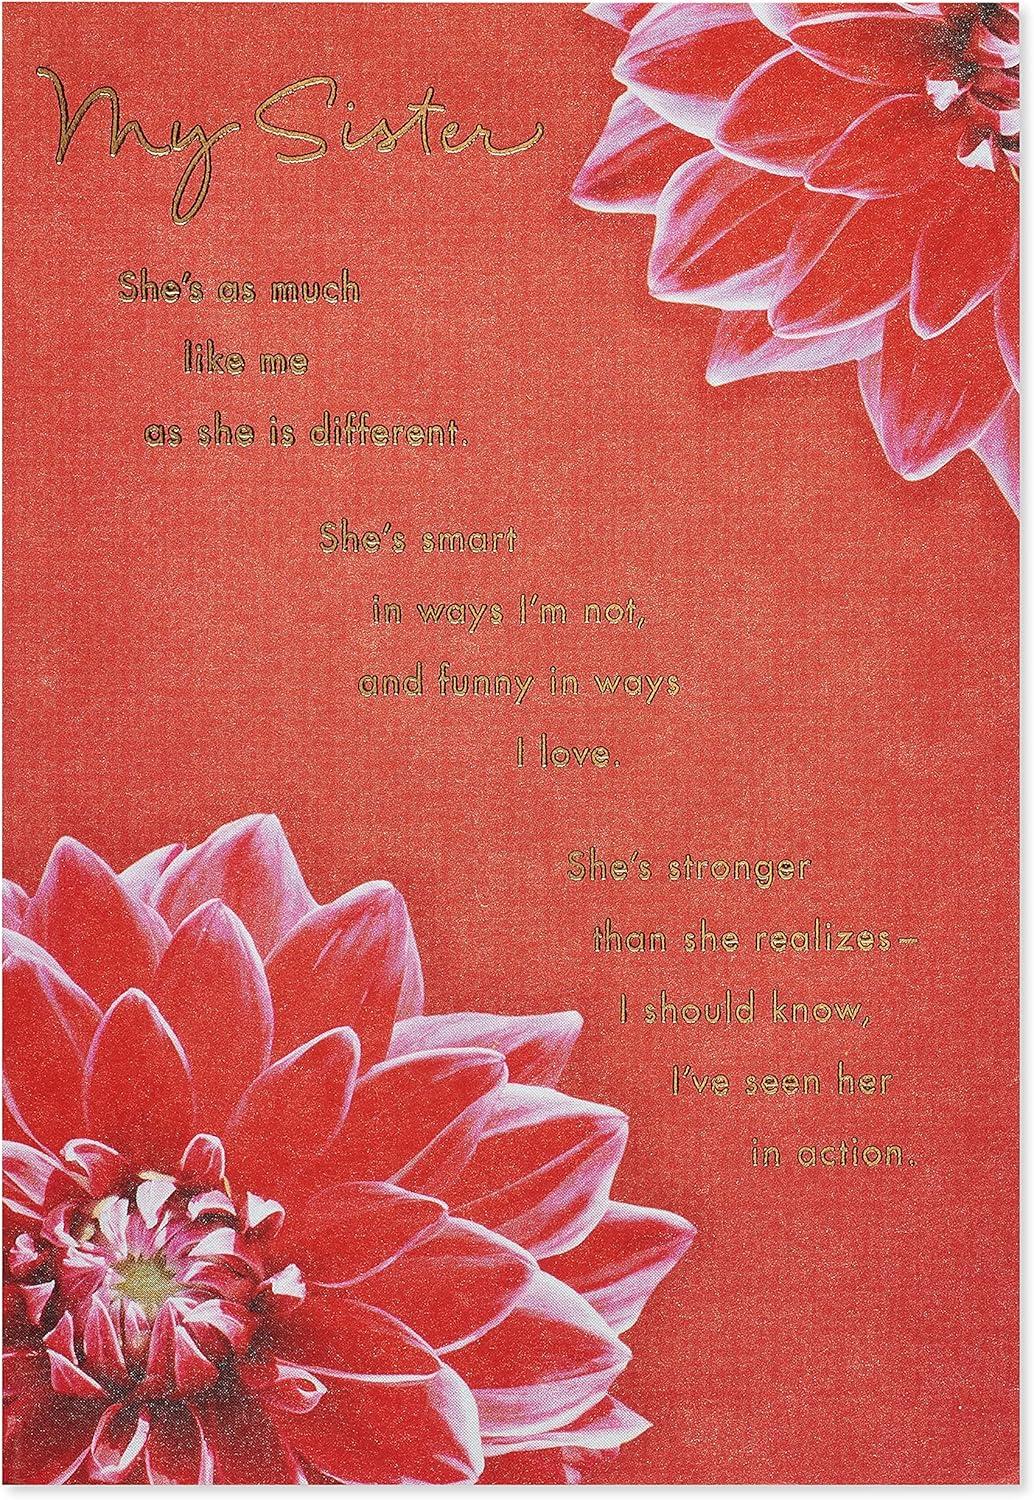 My Sister
She's as much
like me
as she is different.
She's smart
in ways I'm not,
and funny in ways
I love.
She's stronger
than she realizes–
I should know,
I've seen her
in action.